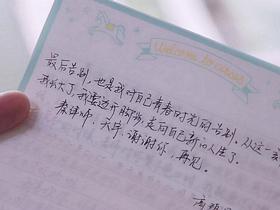 Welcome to
最后告别，也是我对自己青春时光的告别．从这一
我长大了，我要迈开脚步，走向自己新的人生了．
秦律师，天宇，谢谢你，再见．